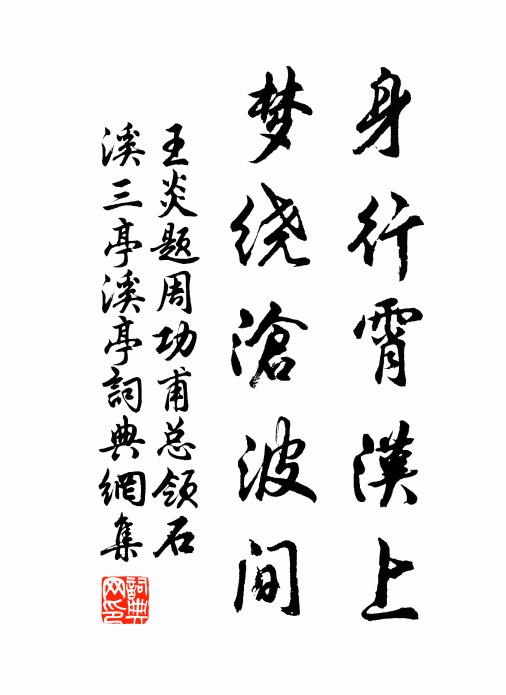 身行霄漢上
梦绕滄波间
王炎题周功甫总领石
溪三亭溪亭詞典網集
詞典网印